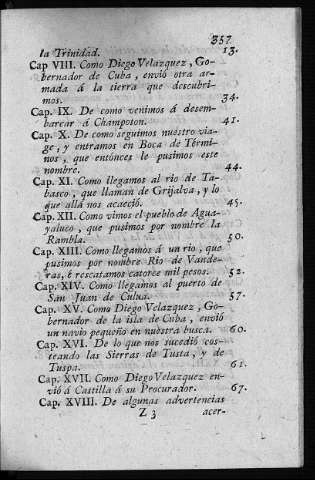 357
la Trinidad. 13.
Cap VIII. Como Diego Velazquez, Go-
bernador de Cuba, envió otra ar-
mada á la tierra que descubri-
mos. 34.
Cap. IX. De como venimos á desem-
barcar á Champoton. 41.
Cap. X. De como seguimos nuestro via-
ge, y entramos en Boca de Térmi-
nos, que entónces le pusimos este
nombre. 44.
Cap. XI. Como llegamos al rio de Ta-
basco, que llaman de Grijalva, y lo
que allá nos acaeció. 45.
Cap. XII. Como vimos el pueblo de Agua-
yaluco, que pusimos por nombre la
Rambla. 50.
Cap. XIII. Como llegamos á un rio, que
pusimos por nombre Rio de Vande-
ras, é rescatamos catorce mil pesos. 52.
Cap. XIV. Como llegamos al puerto de
San Juan de Culua. 57.
Cap. XV. Como Diego Velazquez, Go-
bernador de la isla de Cuba, envió
un navio pequeño en nuestra busca. 60.
Cap. XVI. De lo que nos sucedió cos-
teando las Sierras de Tusta, y de
Tuspa. 61.
Cap. XVII. Como Diego Velazquez en-
vió á Castilla á su Procurador. 67.
Cap. XVIII. De algunas advertencias
Z 3 acer-